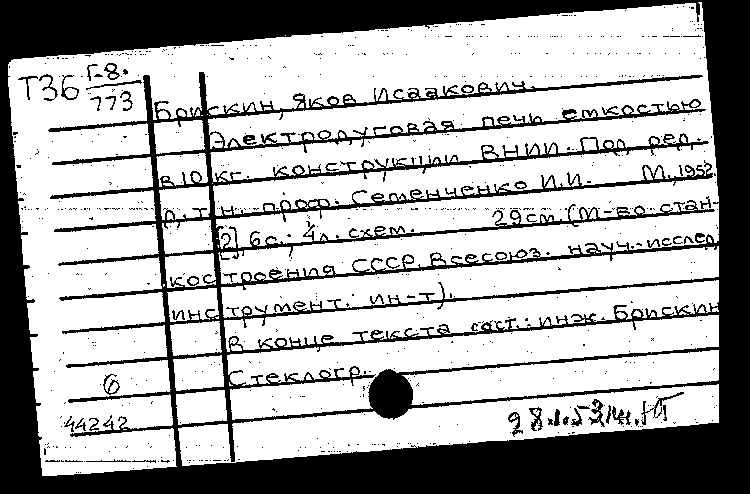 Т36 Г-8.
773
Брискин, Яков Исаакович.
Электродуговая печь емкостью
в 10 кг. конструкции ВНИИ. Под ред.
д.т.н. проф. Семенченко И.И. М., 1952.
[2], 6 с.; 4 л. схем. 29 см. (М-во стан-
костроения СССР. Всесоюз. науч.-исслед.
инструмент. ин-т).
В конце текста сост.: инж. Брискин
Стеклогр.
6
44242